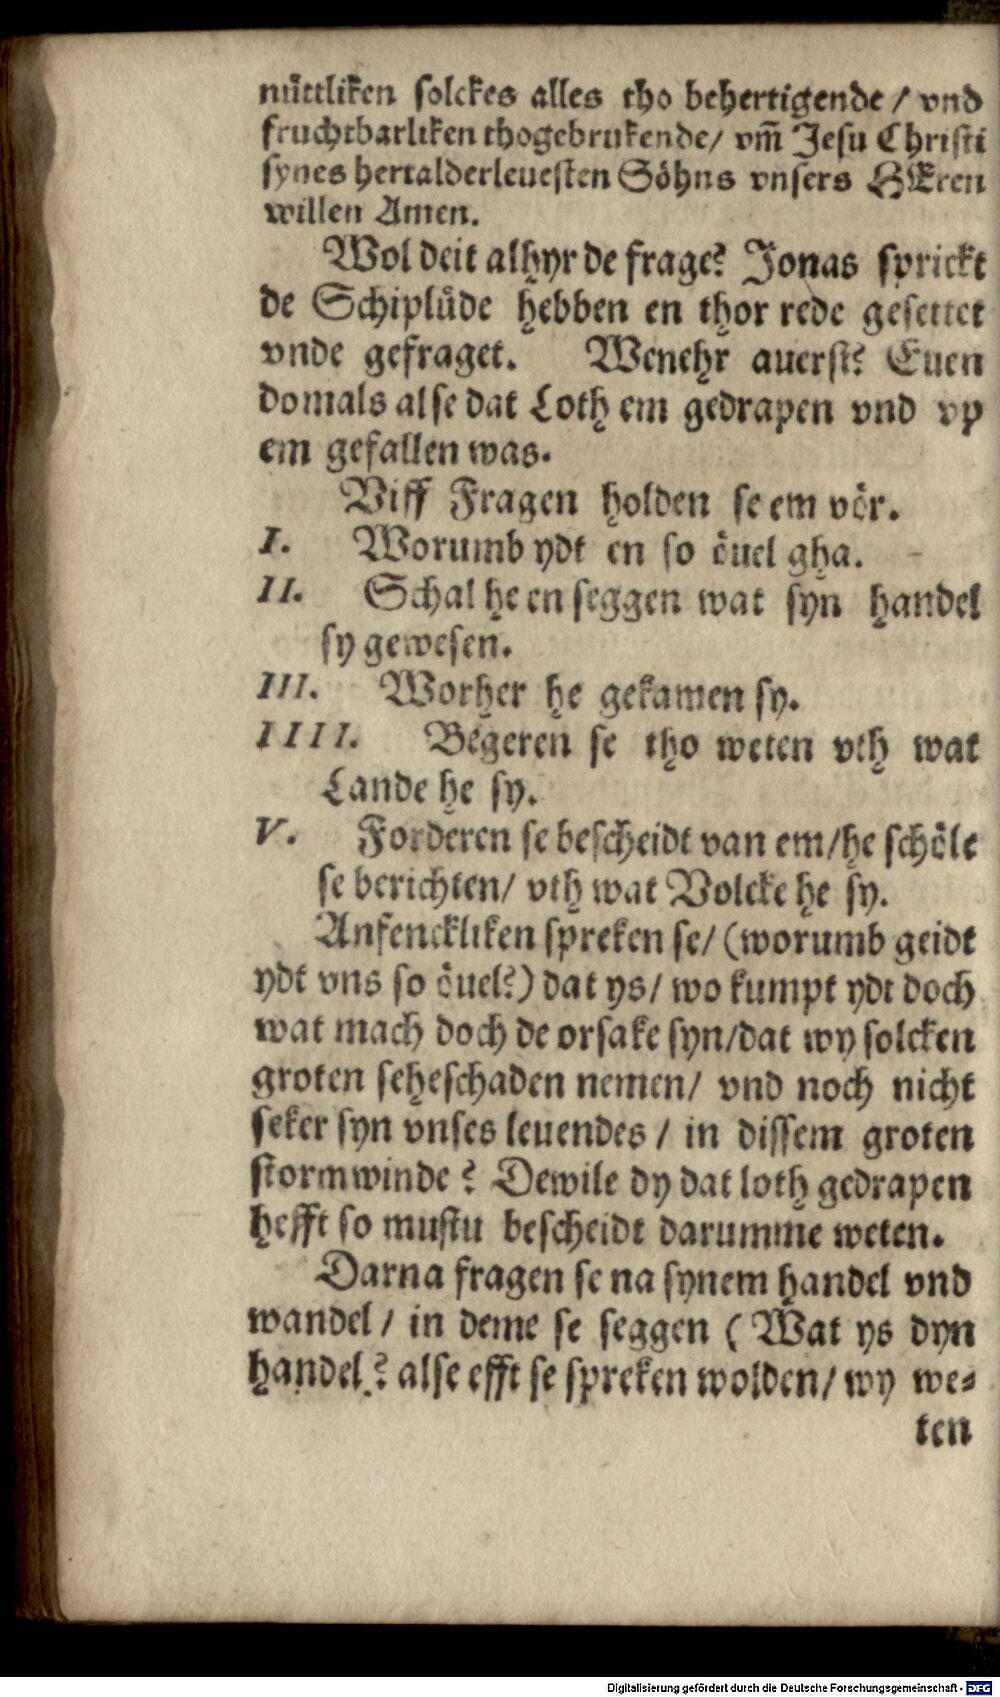 nüttliken solckes alles tho behertigende / vnd
fruchtbarliken thogebrukende/ vm̃ Jesu Christi
synes hertalderleuesten Söhns vnsers HEren
willen Amen.
Wol deit alhyr de frage? Jonas sprickt
de Schiplüde hebben en thor rede gesettet
vnde gefraget. Wenehr auerst? Euen
domals alse dat Loth em gedrapen vnd vp
em gefallen was.
Viff Fragen holden se em vör.
I. Worumb ydt en so öuel gha.
II. Schal he en seggen wat syn handel
sy gewesen.
III. Worher he gekamen sy.
IIII. Begeren se tho weten vth wat
Lande he sy.
V. Forderen se bescheidt van em/he schöle
se berichten/ vth wat Volcke he sy.
Anfenckliken spreken se/ (worumb geidt
ydt vns so öuel?) dat ys/ wo kumpt ydt doch
wat mach doch de orsake syn/dat wy solcken
groten seheschaden nemen/ vnd noch nicht
seker syn vnses leuendes / in dissem groten
stormwinde? Dewile dy dat loth gedrapen
hefft so mustu bescheidt darumme weten.
Darna fragen se na synem handel vnd
wandel / in deme se seggen ( Wat ys dyn
handel? alse efft se spreken wolden/ wy we⸗
ten
Digitalisierung gefördert durch die Deutsche Forschungsgemeinschaft - DFG